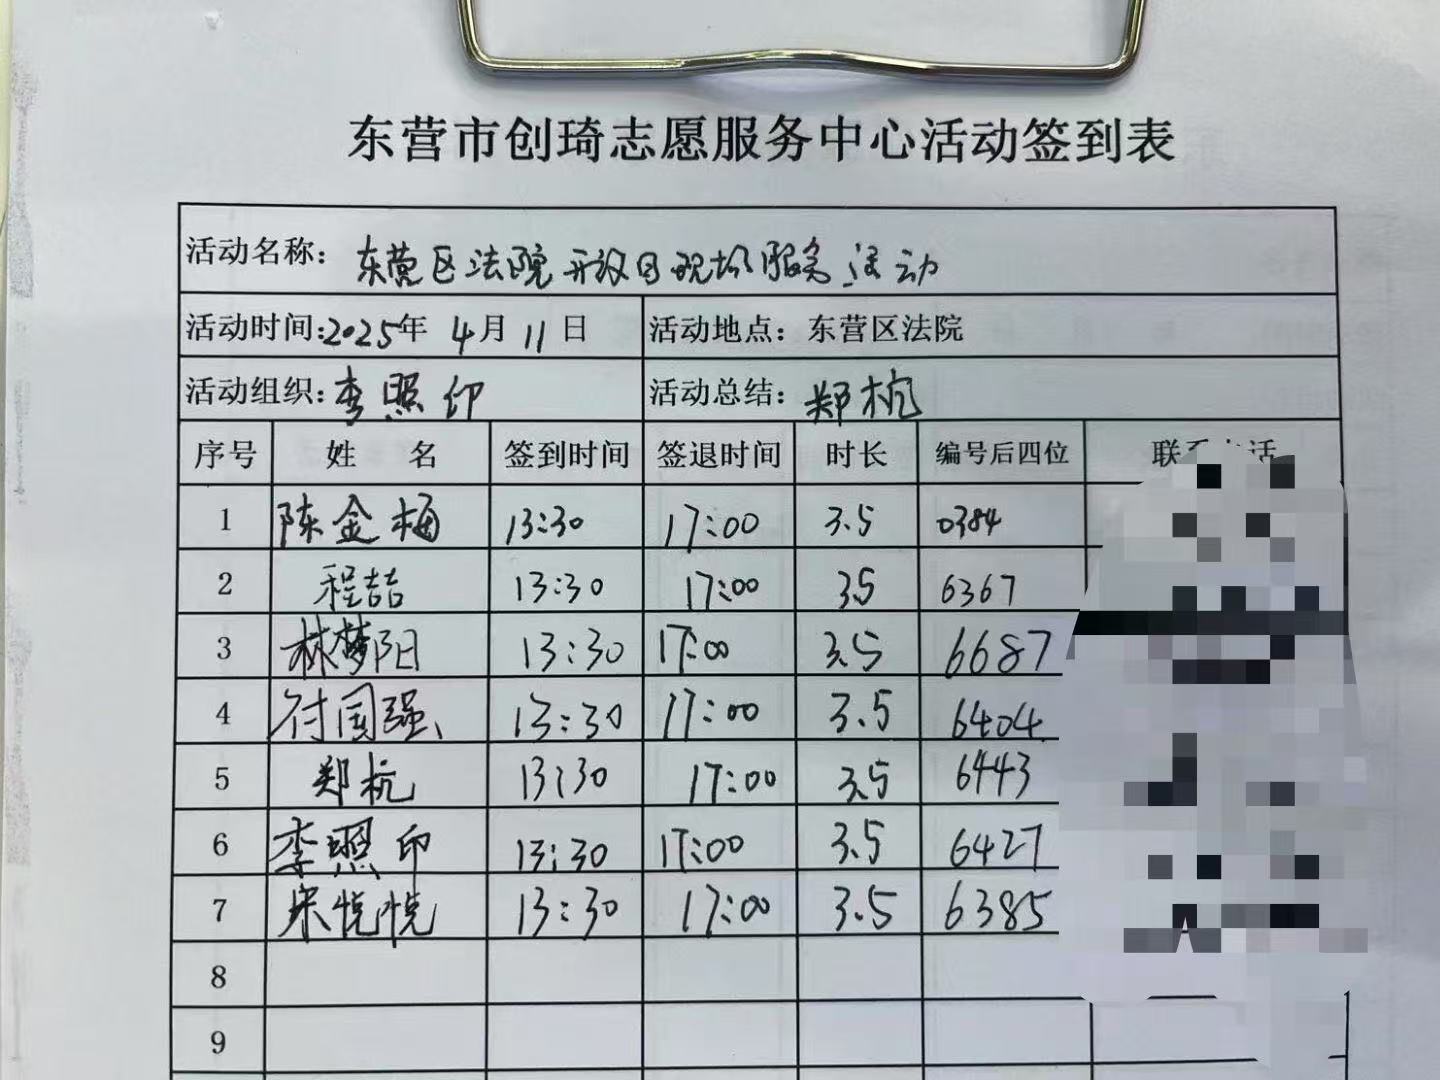 东营市创琦志愿服务中心活动签到表
活动名称: 东营区法院开放日现场服务活动
活动时间:2025年 4月 11日 活动地点: 东营区法院
活动组织: 李照印 活动总结: 郑杭
序号 姓 名 签到时间 签退时间 时长 编号后四位 联系电话
1 陈金梅 13:30 17:00 3.5 0384
2 程喆 13:30 17:00 35 6367
3 林梦阳 13:30 17:00 3.5 6687
4 付国强 13:30 17:00 3.5 6404
5 郑杭 13:30 17:00 3.5 6443
6 李照印 13:30 17:00 3.5 6427
7 宋悦悦 13:30 17:00 3.5 6385
8
9